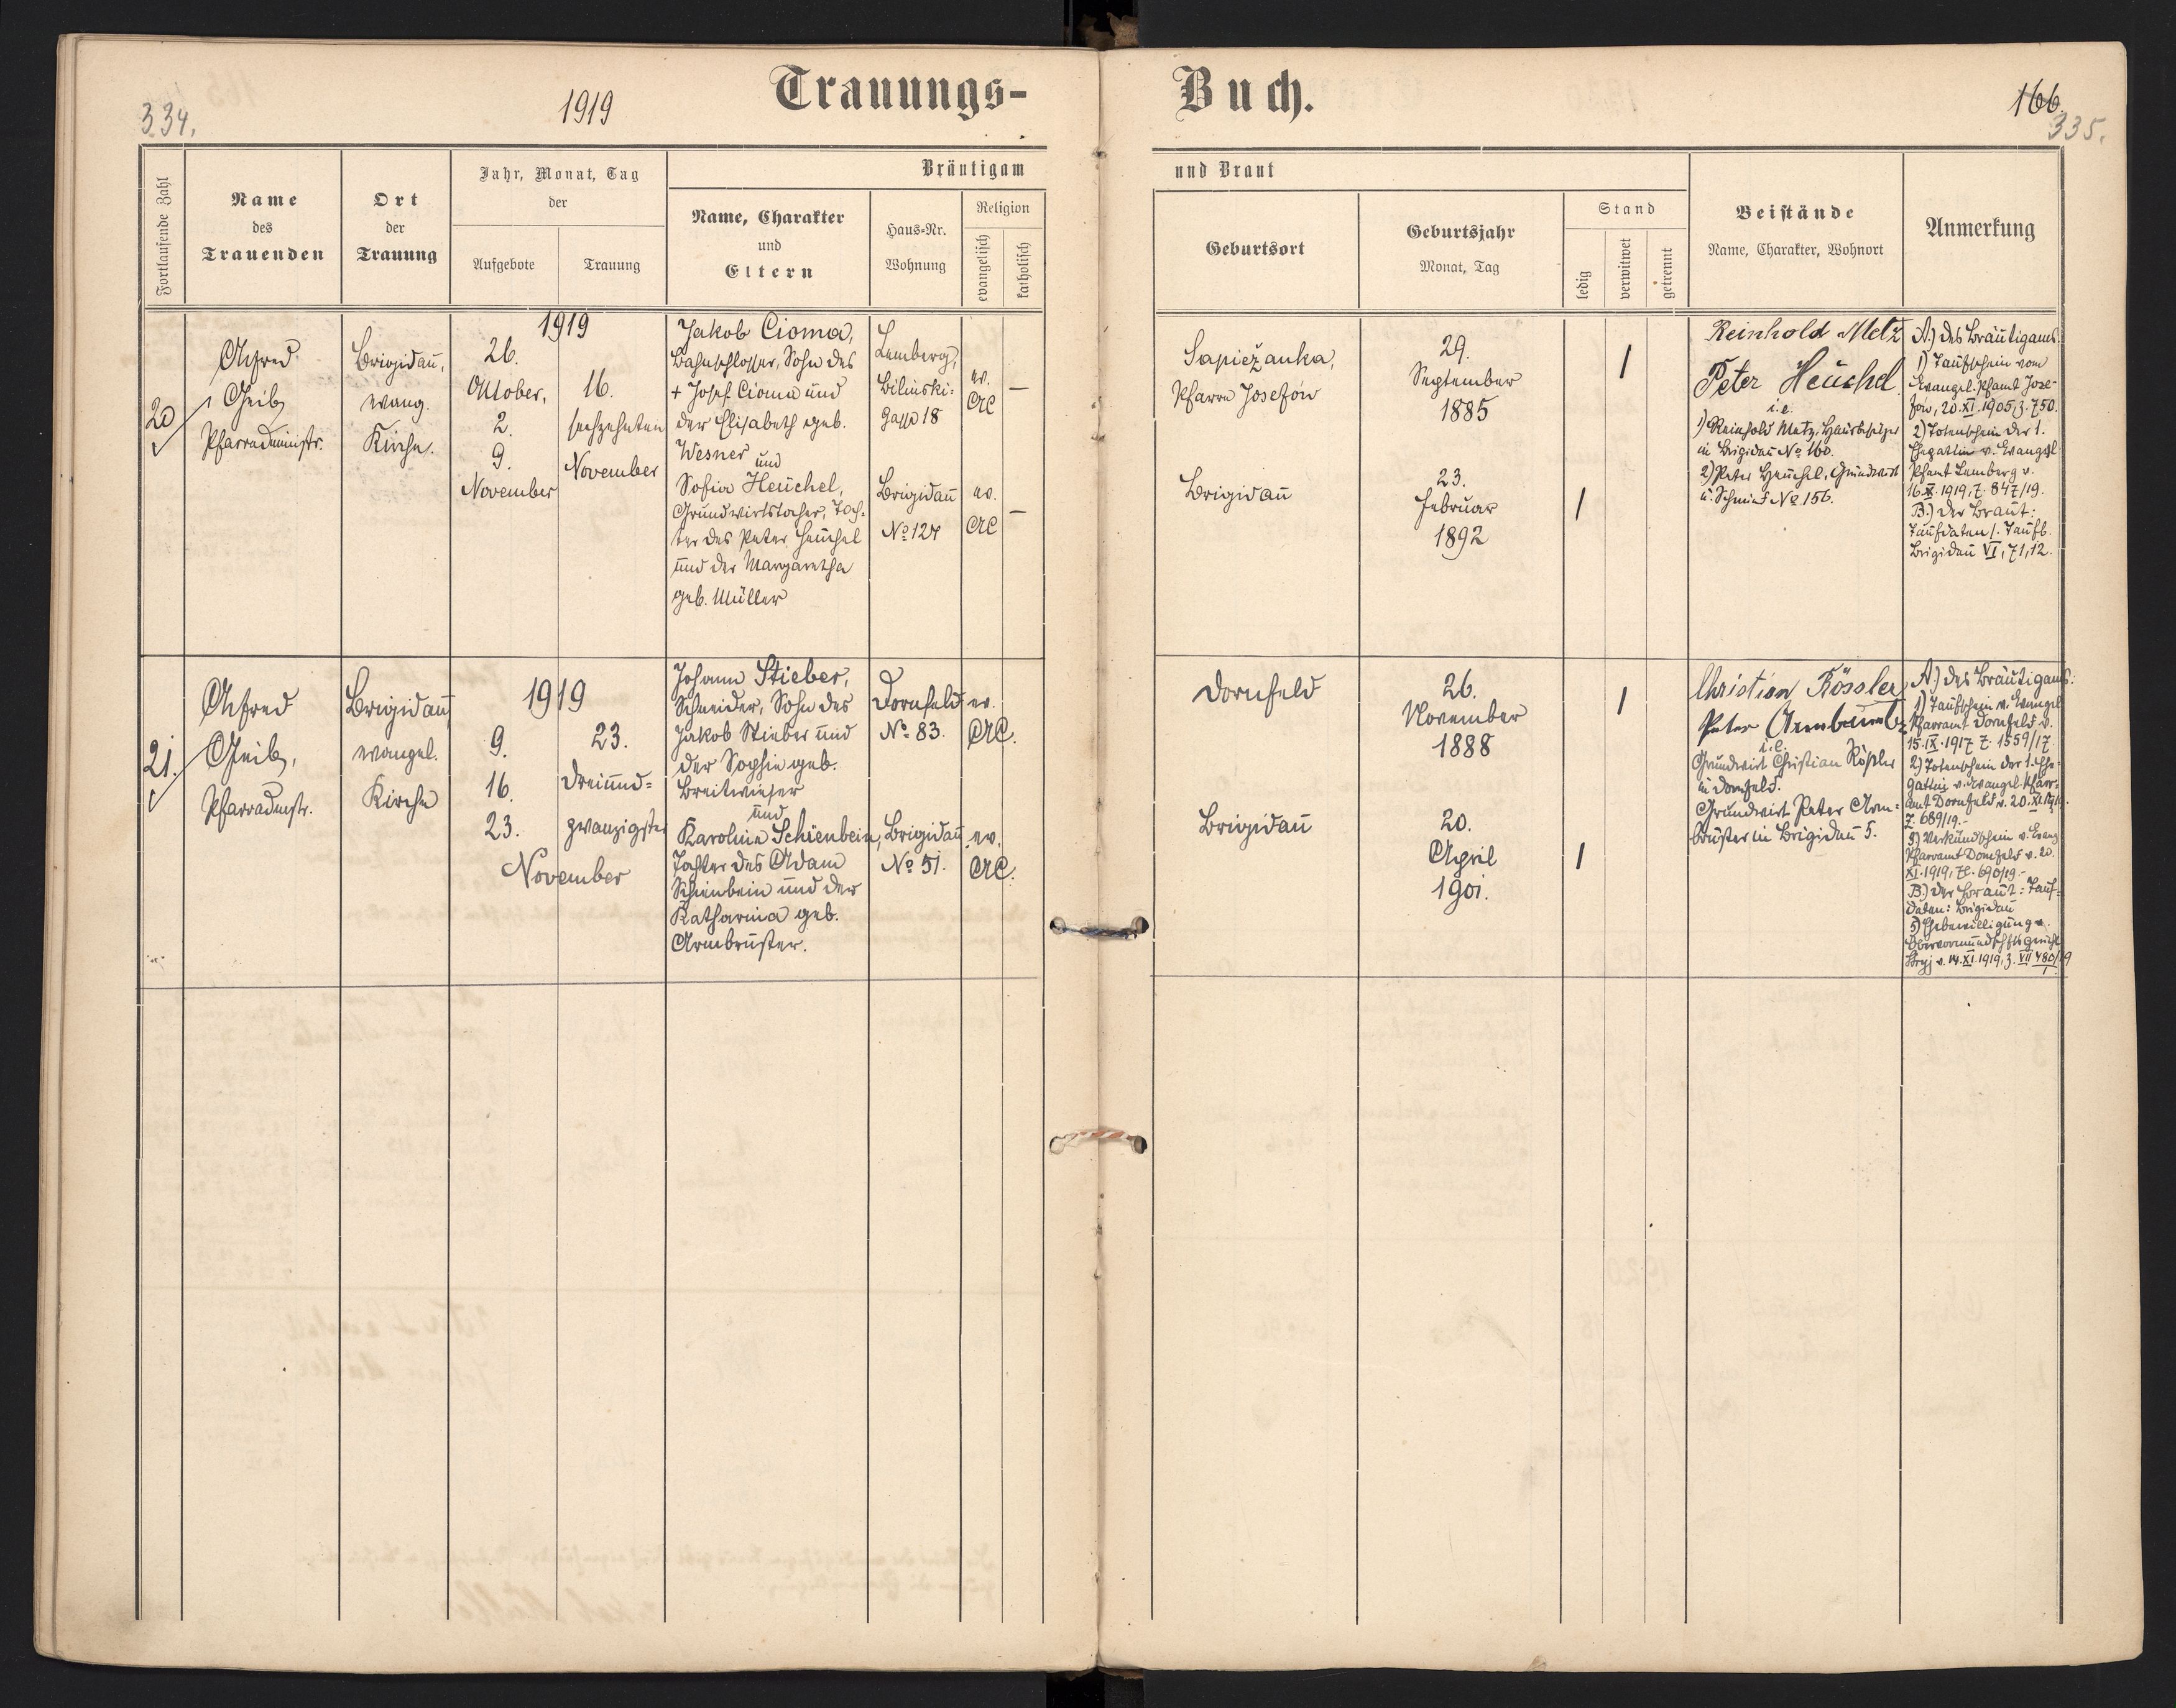 334.
1919
Trauungs-
Buch.
166.
335.
Fortlaufende Zahl
Name
des
Trauenden
Ort
der
Trauung
Jahr, Monat, Tag
der
Aufgebote
Trauung
Bräutigam
Name, Charakter
und
Eltern
Haus-Nr.
Wohnung
Religion
evangelisch
katholisch
und Braut
Geburtsort
Geburtsjahr
Monat, Tag
Stand
ledig
verwitwet
getrennt
Beistände
Name, Charakter, Wohnort
Anmerkung
20
Alfred
Geib,
Pfarradministr.
Brigidau,
evang.
Kirche.
1919
26.
Oktober,
2.
9.
November
16.
sechzehnten
November
Jakob Cioma,
Bahnschlosser, Sohn des
+ Josef Cioma und
der Elisabeth geb.
Wesner und
Sofia Heuchel,
Grundwirtstochter, Toch-
ter des Peter Heuchel
und der Margaretha
geb. Müller
Lemberg,
Bilinski-
Gasse 18
Brigidau
No 124
ev.
AC
—
ev.
AC
—
Sapieżanka,
Pfarre Josefów
Brigidau
29.
September
1885
23.
Februar
1892
1
1
Reinhold Metz
Peter Heuchel
i.e.
1) Reinhold Metz, Hausbesitzer
in Brigidau No 160.
2) Peter Heuchel, Grundwirt
u. Schmied No 156.
A.) des Bräutigams:
1) Taufschein vom
Evangel. Pfamt Jose-
fów, 20.XI.1905, Z. 750.
2) Totenschein der 1.
Ehegattin v. Evangel.
Pfamt Lemberg v.
16.X.1919, Z. 847/19.
B.) der Braut:
Taufdaten /. Taufb.
Brigidau VI, 71, 12.
21.
Alfred
Geib,
Pfarradmstr.
Brigidau,
evangel.
Kirche
1919
9.
16.
23.
23.
dreiund-
zwanzigsten
November
Johann Stieber,
Schneider, Sohn des
Jakob Stieber und
der Sophie geb.
Breitwieser
und
Karoline Schienbein,
Tochter des Adam
Schienbein und der
Katharina geb.
Armbruster.
Dornfeld
No 83.
Brigidau
No 51.
ev.
AC.
ev.
AC.
Dornfeld
Brigidau
26.
November
1888
20.
April
1901.
1
1
Christian Rössler
Peter
i.e.
Grundwirt Christian Rößler
in Dornfeld.
Grundwirt Peter Arm-
bruster in Brigidau 5.
A.) des Bräutigams:
1) Taufschein v. Evangel.
Pfarramt Dornfeld v.
15.IX.1917 Z. 1559/17.
2) Totenschein der 1. Ehe-
gattin v. Evangel. Pfarr-
amt Dornfeld v. 20.XI.1919.
Z. 689/19.-
3) Verkündschein v. Evang.
Pfarramt Dornfeld v. 20.
XI.1919, Zl. 690/19.-
B.) der Braut: Tauf-
daten: Brigidau
5) Ehebewilligung v.
Obervormundschftsgericht
Stryj v. 14.XI.1919, Z. VII 480/19